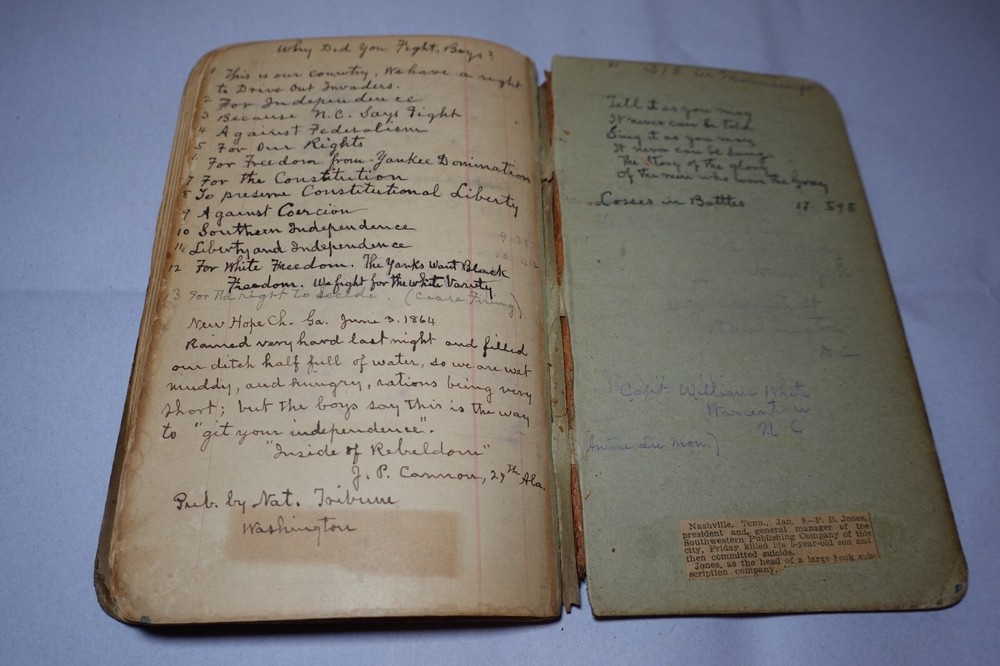 Why Did You Fight, Boys?
1 This is our country. We have a right
to Drive Out Invaders.
2 For Independence
3 Because N.C. Says Fight
4 Against Federalism
5 For Our Rights
For Freedom from Yankee Domination
7 For the Constitution
8 To preserve Constitutional Liberty
9 Against Coercion
10 Southern Independence
11 Liberty and Independence
12 For White Freedom. The Yanks Want Black
Freedom. We fight for the White Varity.
3 For the right to secede. (Cease Firing)
New Hope Ch. Ga. June 3. 1864
Rained very hard last night and filled
our ditch half full of water, so we are wet
muddy, and hungry, rations being very
short; but the boys say this is the way
to "git your independence".
"Inside of Rebeldom"
J. P. Cannon, 27th Ala.
Pub. by Nat. Tribune
Washington
in Manuscript
Tell it as you may
It never can be told
Sing it as you may
It never can be sung
The story of the glory
Of the men who wore the Gray
Losses in Battles 17. 598
Capt. William White
Warrenton
N. C
(Antire Lee Mon.)
Nashville, Tenn., Jan. 8.—P. B. Jones,
president and general manager of the
Southwestern Publishing Company of this
city, Friday killed his 5-year-old son and
then committed suicide.
Jones, as the head of a large book sub-
scription company,